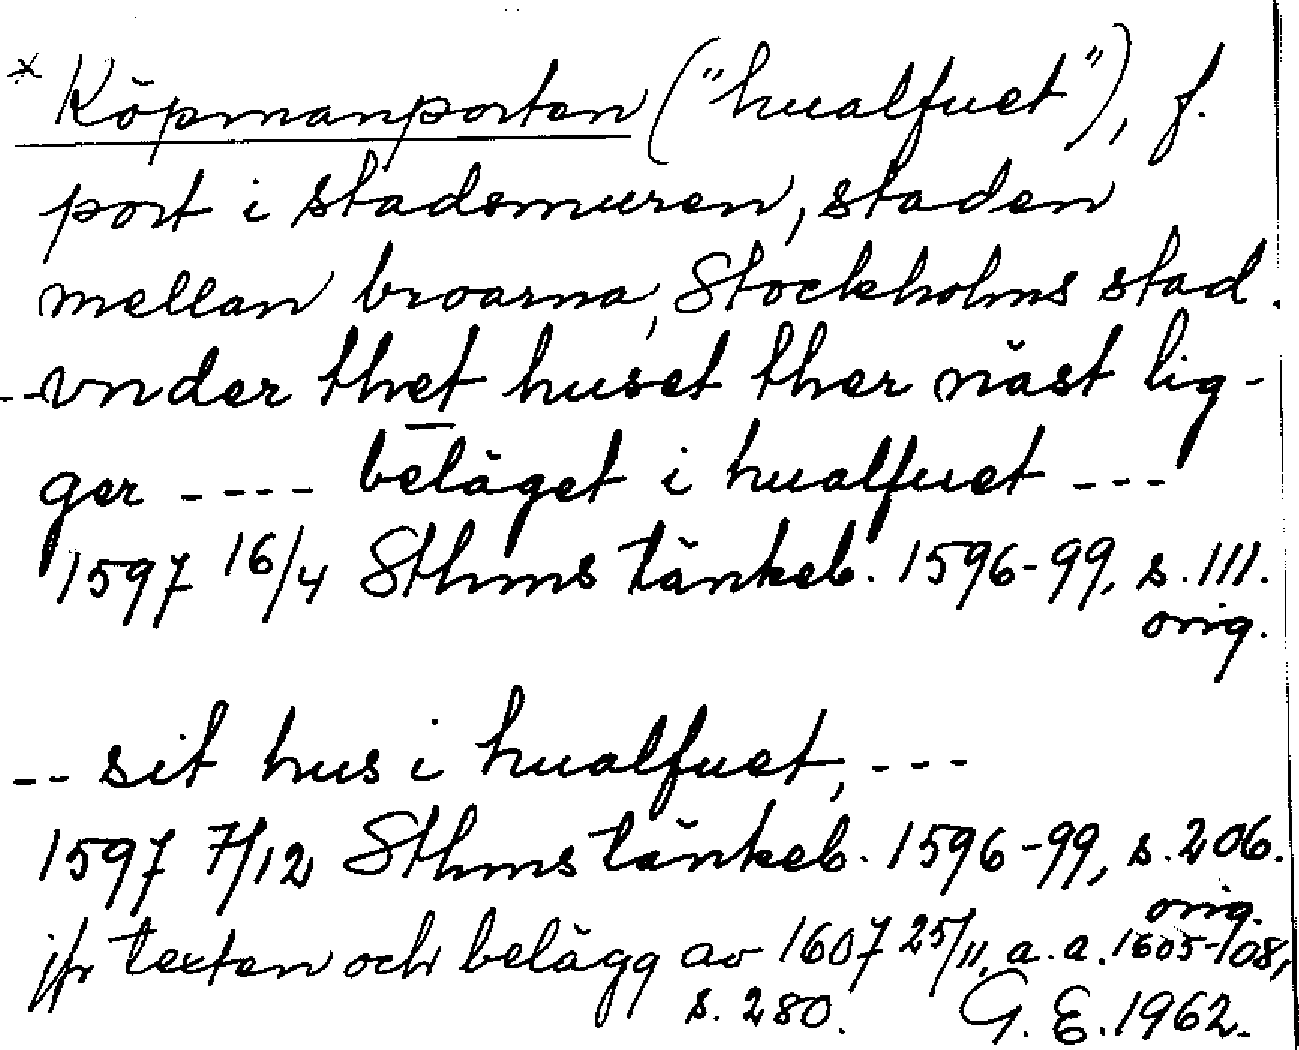 * Köpmanporten ("hualfuet"), f.
port i stadsmuren, staden
mellan broarna, Stockholms stad.
--vnder thet huset ther näst lig-
ger ---- beläget i hualfuet ---
1597 16/4 Sthms tänkeb. 1596-99, s. 111.
orig.
-- sit hus i hualfuet, ---
1597 7/12 Sthms tänkeb. 1596-99, s. 206.
orig.
jfr texten och belägg av 1607 25/11, a. a. 1605-/08,
s. 280. G. E. 1962.